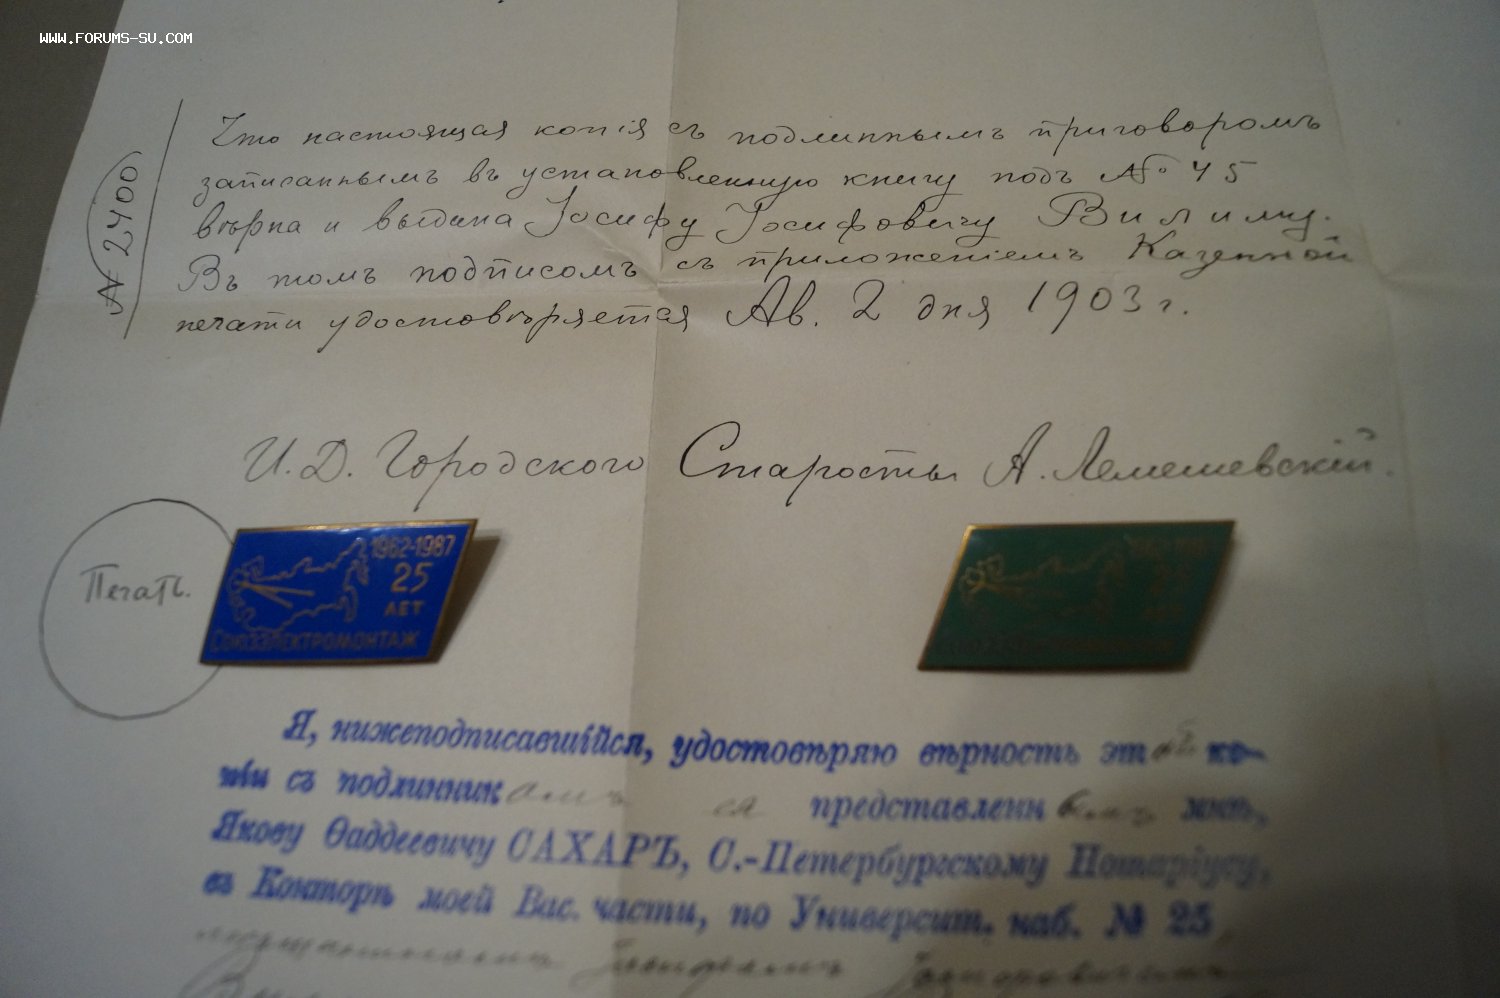 WWW.FORUMS-SU.COM
№ 2400
Что настоящая копія съ подлиннымъ приговоромъ
записаннымъ въ установленную книгу подъ № 45
вѣрна и выдана Іосифу Іосифовичу Вилиму.
Въ томъ подписомъ съ приложеніемъ Казенной
печати удостовѣряется Ав. 2 дня 1903 г.
И. Д. Городского Старосты А. Лемешевскій.
Печать.
1962-1987
25
ЛЕТ
СОЮЗЭЛЕКТРОМОНТАЖ
Я, нижеподписавшійся, удостовѣряю вѣрность этой ко-
піи съ подлинникомъ ея представленнымъ мнѣ,
Якову Ѳаддеевичу САХАРЪ, С.-Петербургскому Нотаріусу,
въ Конторѣ моей Вас. части, по Университ. наб. № 25
Іосифомъ Іосифовичемъ